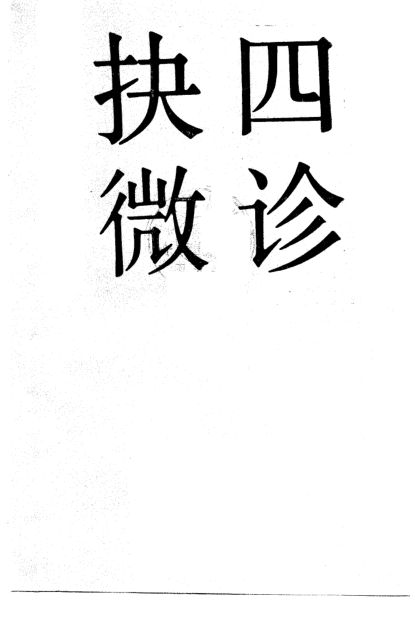 四诊
抉微